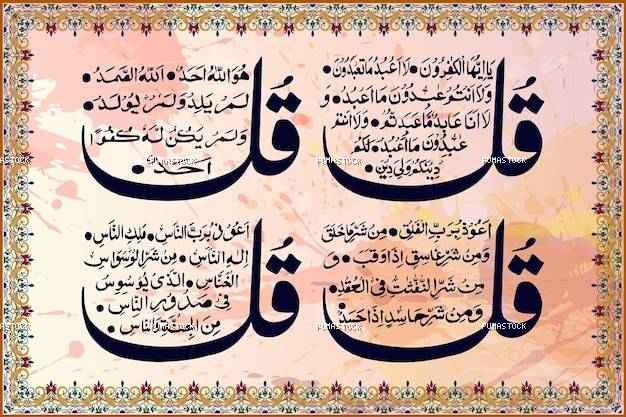 قُلْ
يَا اَيُّهَا الْكٰفِرُوْنَ • لَا اَعْبُدُ مَا تَعْبُدُوْنَ •
وَلَا اَنْتُمْ عٰبِدُوْنَ مَا اَعْبُدُ • وَ
لَا اَنَا عَابِدٌ مَّا عَبَدْتُّمْ • وَلَا اَنْتُمْ
عٰبِدُوْنَ مَا اَعْبُدُ • لَكُمْ
دِيْنُكُمْ وَلِيَ دِيْنِ •
قُلْ
هُوَ اللّٰهُ اَحَدٌ • اَللّٰهُ الصَّمَدُ •
لَمْ يَلِدْ وَلَمْ يُوْلَدْ •
وَلَمْ يَكُنْ لَّهُ كُفُوًا
اَحَدٌ •
قُلْ
اَعُوْذُ بِرَبِّ الْفَلَقِ • مِنْ شَرِّ مَا خَلَقَ
وَمِنْ شَرِّ غَاسِقٍ اِذَا وَقَبَ • وَ
مِنْ شَرِّ النَّفّٰثٰتِ فِي الْعُقَدِ •
وَمِنْ شَرِّ حَاسِدٍ اِذَا حَسَدَ •
قُلْ
اَعُوْذُ بِرَبِّ النَّاسِ • مَلِكِ النَّاسِ •
اِلٰهِ النَّاسِ • مِنْ شَرِّ الْوَسْوَاسِ
الْخَنَّاسِ • الَّذِيْ يُوَسْوِسُ
فِيْ صُدُوْرِ النَّاسِ •
مِنَ الْجِنَّةِ وَالنَّاسِ
PUMASTOCK
PUMASTOCK
PUMASTOCK
PUMASTOCK